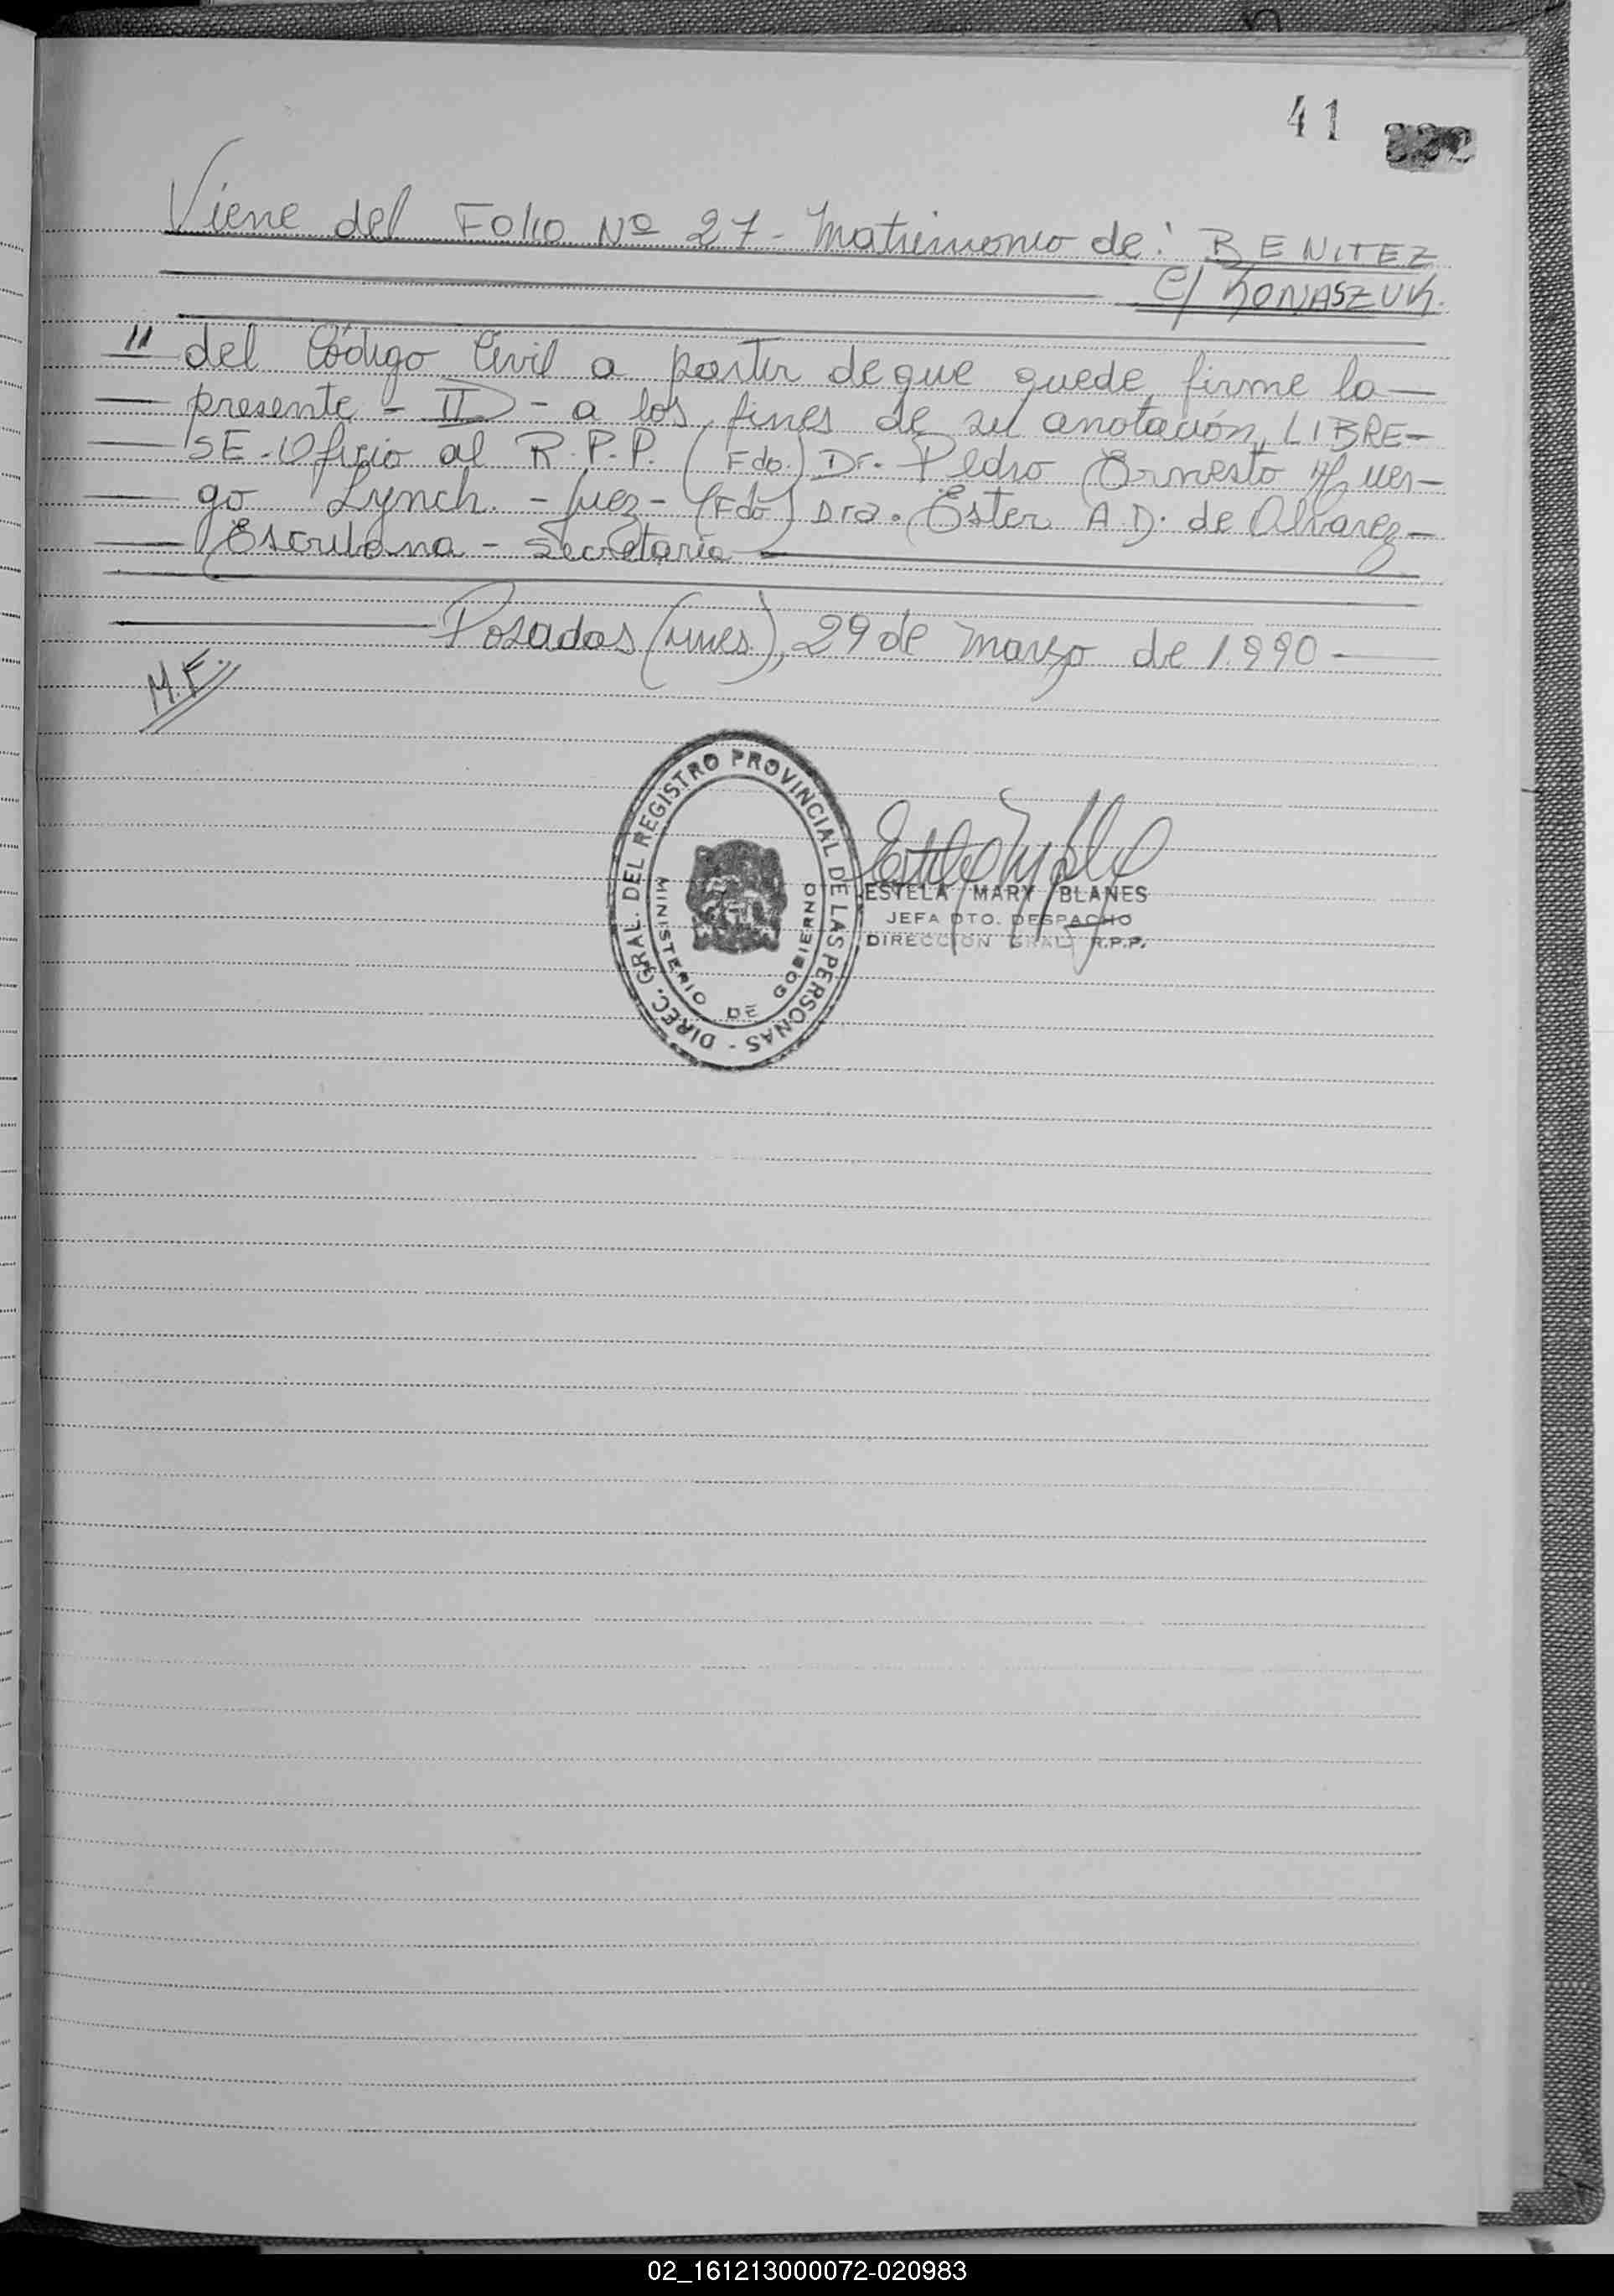 41
Viene del Folio Nº 27 - Matrimonio de: BENITEZ
c/ KONASZUK.
" del Código Civil a partir de que quede firme la
presente - II) - a los fines de su anotación, LIBRE-
SE - Oficio al R.P.P. (Fdo.) Dr. Pedro Ernesto Huer-
go Lynch. - Juez - (Fdo) Dra. Ester A.D. de Alvarez -
Escribana - Secretaria
Posadas (mnes), 29 de marzo de 1.990
M.F.
DIREC. GRAL. DEL REGISTRO PROVINCIAL DE LAS PERSONAS -
MINISTERIO DE GOBIERNO
ESTELA MARY BLANES
JEFA DTO. DESPACHO
DIRECCION GRAL. R.P.P.
02_161213000072-020983